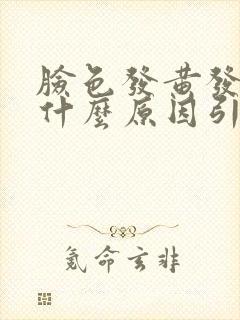 臉色發黃發
什麼原因引
氪命玄非